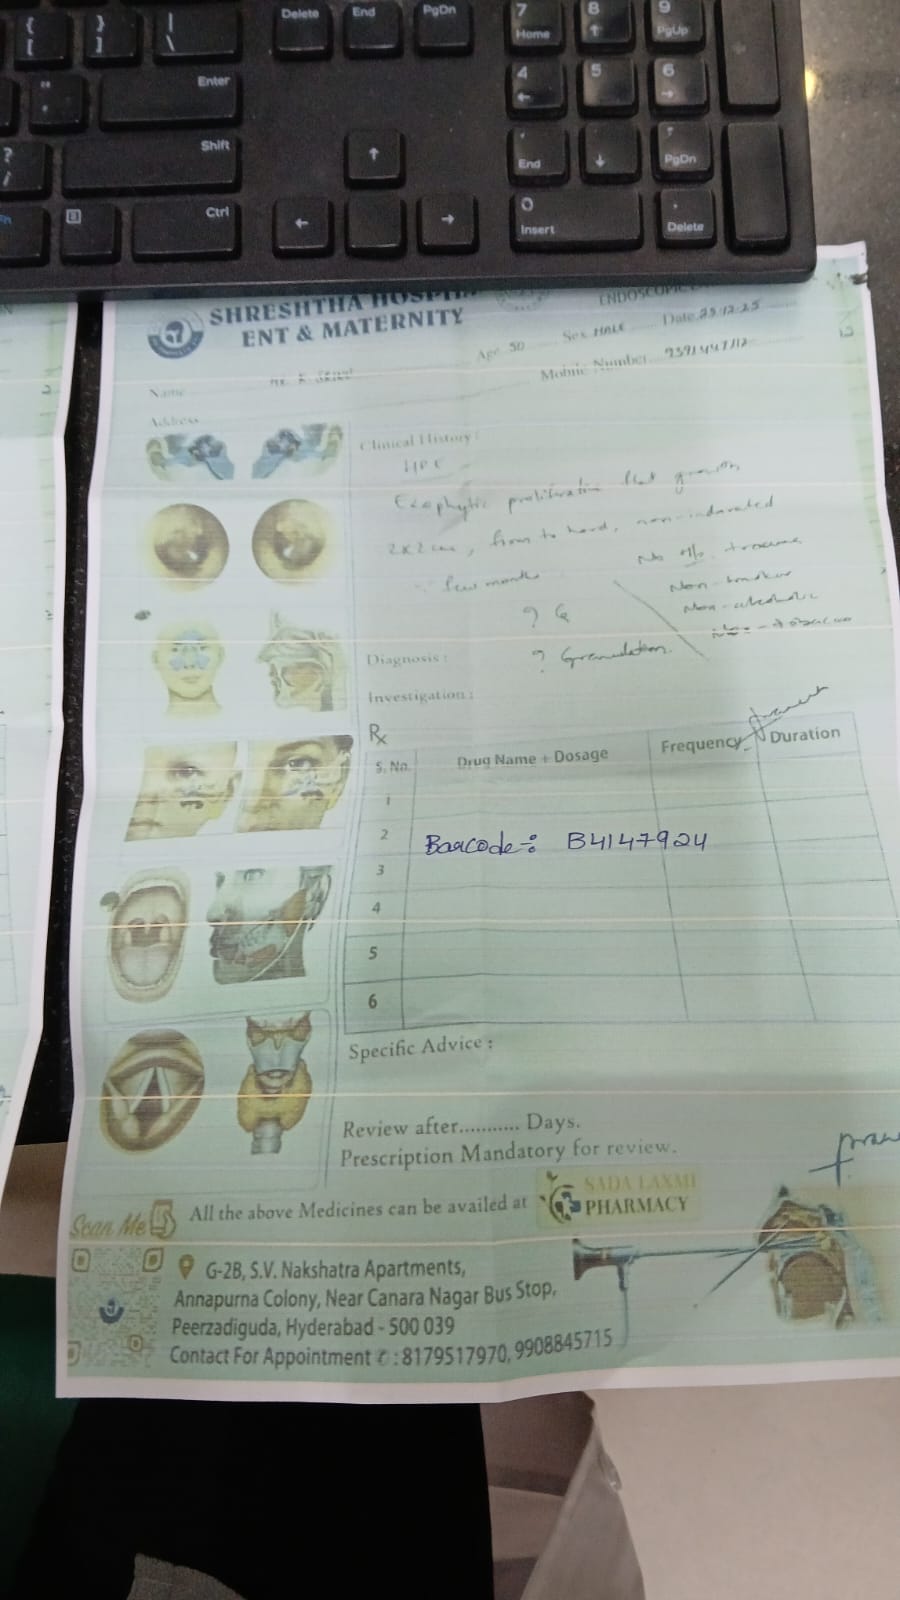 {
[
}
]
|
\
Delete
End
PgDn
7
Home
8
↑
9
PgUp
Enter
4
←
5
6
→
?
/
Shift
↑
1
End
↓
PgDn
Ctrl
←
→
0
Insert
.
Delete
SHRESHTHA HOSPI
ENT & MATERNITY
ENDOSCOPIC
Age 50 Sex MALE Date
Name
Mobile Number
Address
Clinical History :
HPE
Exophytic proliferative growth
2x2 cm, firm to hard, non-indurated
few months
Non-smoker
Non-alcoholic
Diagnosis : ? Granulation.
Investigation :
Rx
S. No. Drug Name + Dosage Frequency Duration
1
2 Baacode-: B4147924
3
4
5
6
Specific Advice :
Review after........... Days.
Prescription Mandatory for review.
Scan Me All the above Medicines can be availed at SADA LAXMI PHARMACY
G-2B, S.V. Nakshatra Apartments,
Annapurna Colony, Near Canara Nagar Bus Stop,
Peerzadiguda, Hyderabad - 500 039
Contact For Appointment : 8179517970, 9908845715